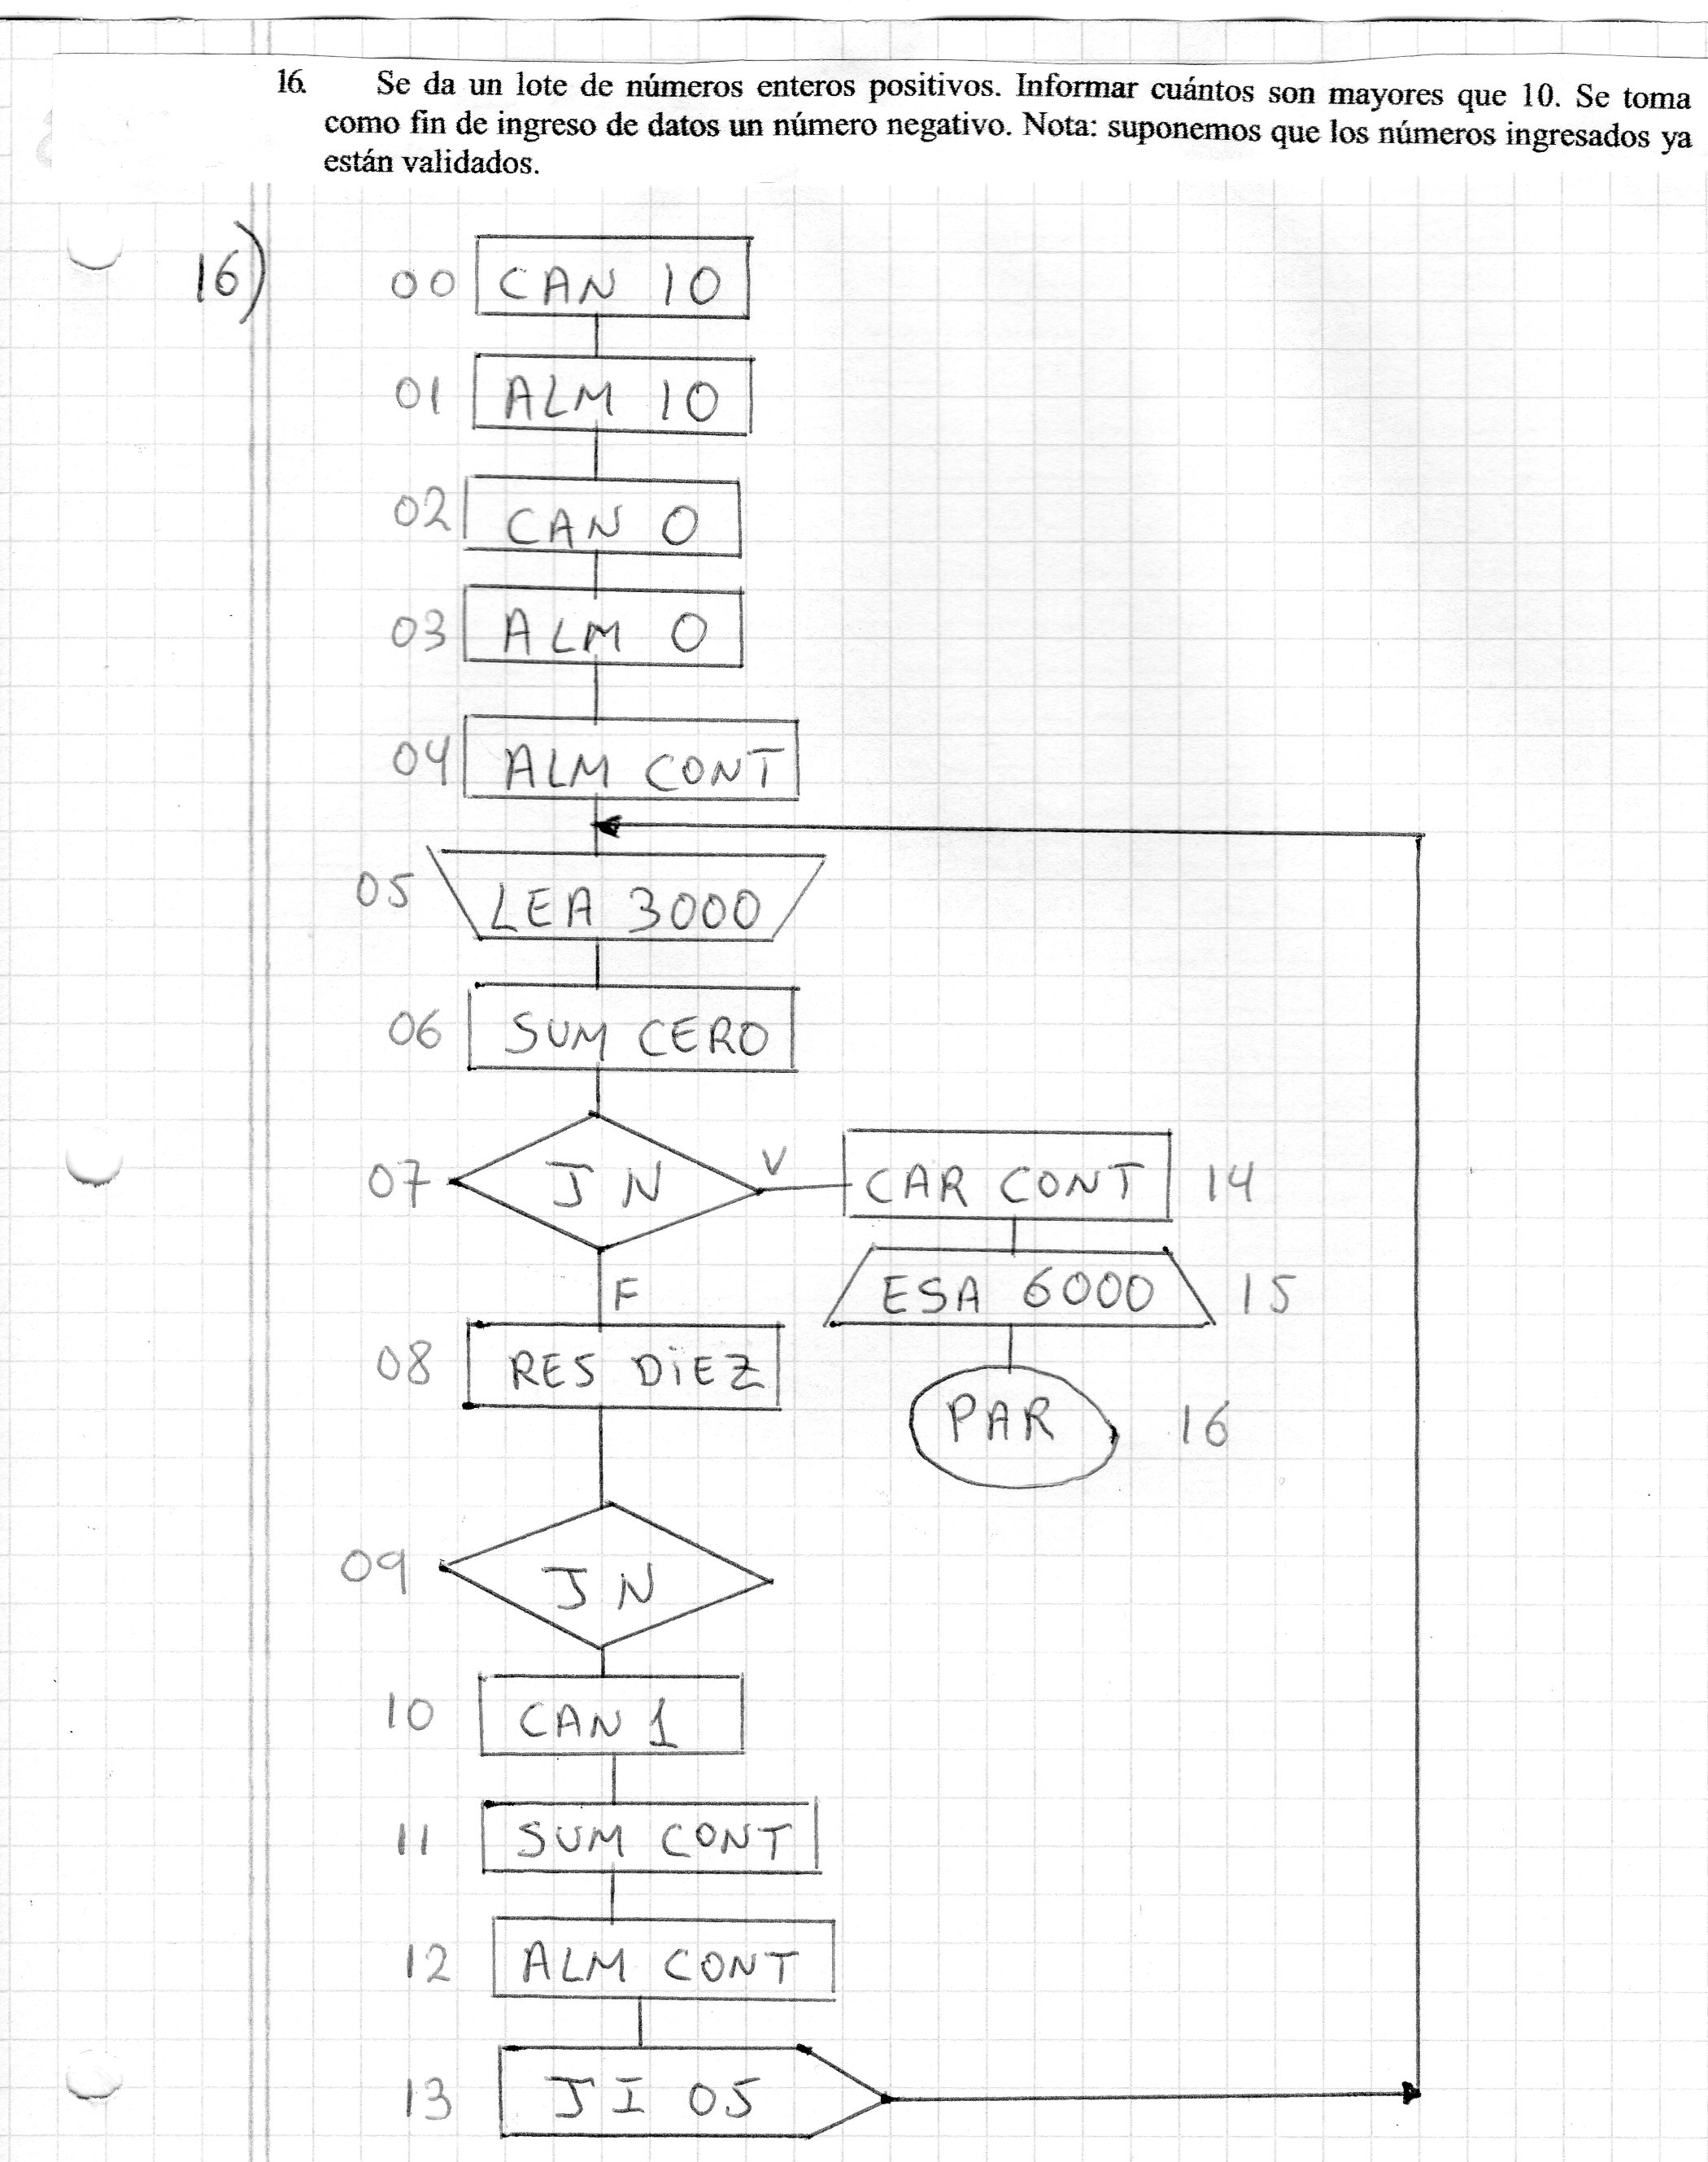 16. Se da un lote de números enteros positivos. Informar cuántos son mayores que 10. Se toma
como fin de ingreso de datos un número negativo. Nota: suponemos que los números ingresados ya
están validados.
16)
00 CAN 10
01 ALM 10
02 CAN 0
03 ALM 0
04 ALM CONT
05 LEA 3000
06 SUM CERO
07 JN V CAR CONT 14
F
ESA 6000 15
08 RES DIEZ
PAR 16
09 JN
10 CAN 1
11 SUM CONT
12 ALM CONT
13 JI 05